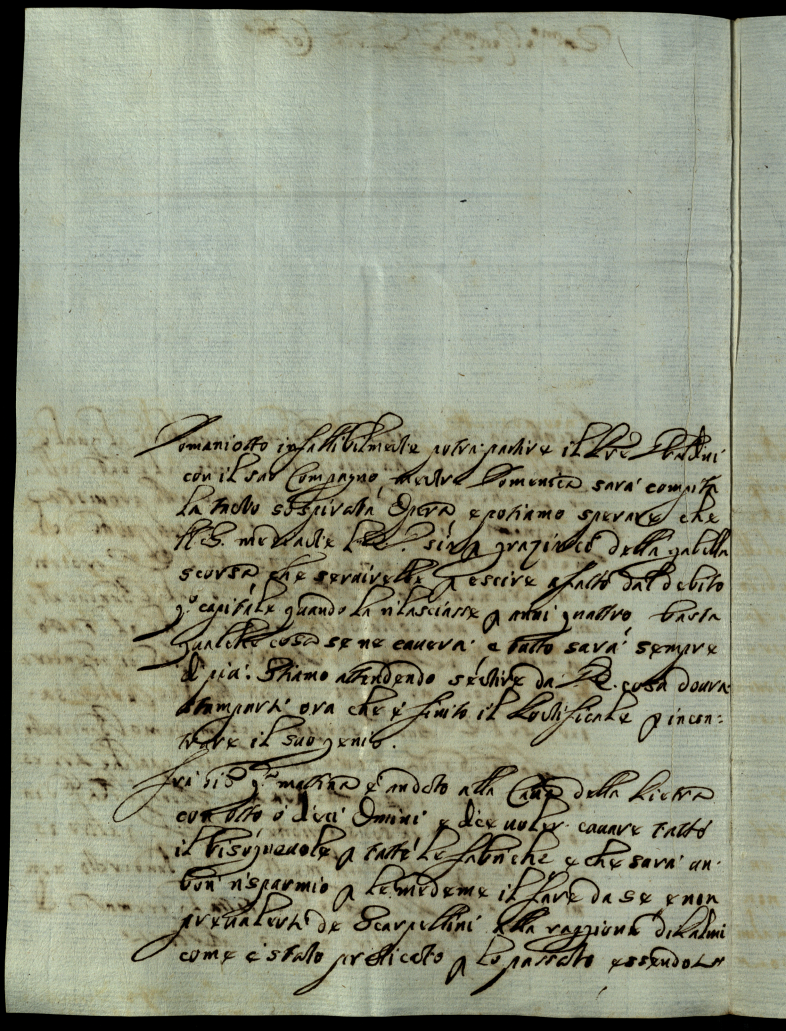 Domani otto infallibilmente potrà partire il Pre Baldini
con il suo Compagno mentre Domenica sarà compita
la tanto sospirata Opera e potiamo sperare che
mediante sij graziato della gabella
scorsa che servirebbe p escire afatto dal debito
capitale quando la rilasciasse p anni quattro basta
qualche cosa se ne caverà e tutto sarà sempre
di più. Stiamo attendendo sentire da cosa dovrà
stamparsi ora che è finito il Pontificale p incon:
trare il suo genio.
Frà mattina è andato alla Cava della Pietra
con otto ò dieci Omini e dice voler cavare tutto
il bisognevole p tutte le fabriche e che sarà un
bon risparmio p le medeme il fare da se e non
prevalersi de Scarpellini alla ragione di Palmi
come è stato praticato p lo passato essendo